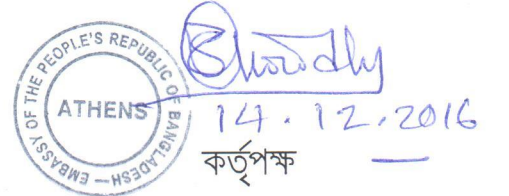 EMBASSY OF THE PEOPLE'S REPUBLIC OF BANGLADESH
ATHENS
14.12.2016
কর্তৃপক্ষ